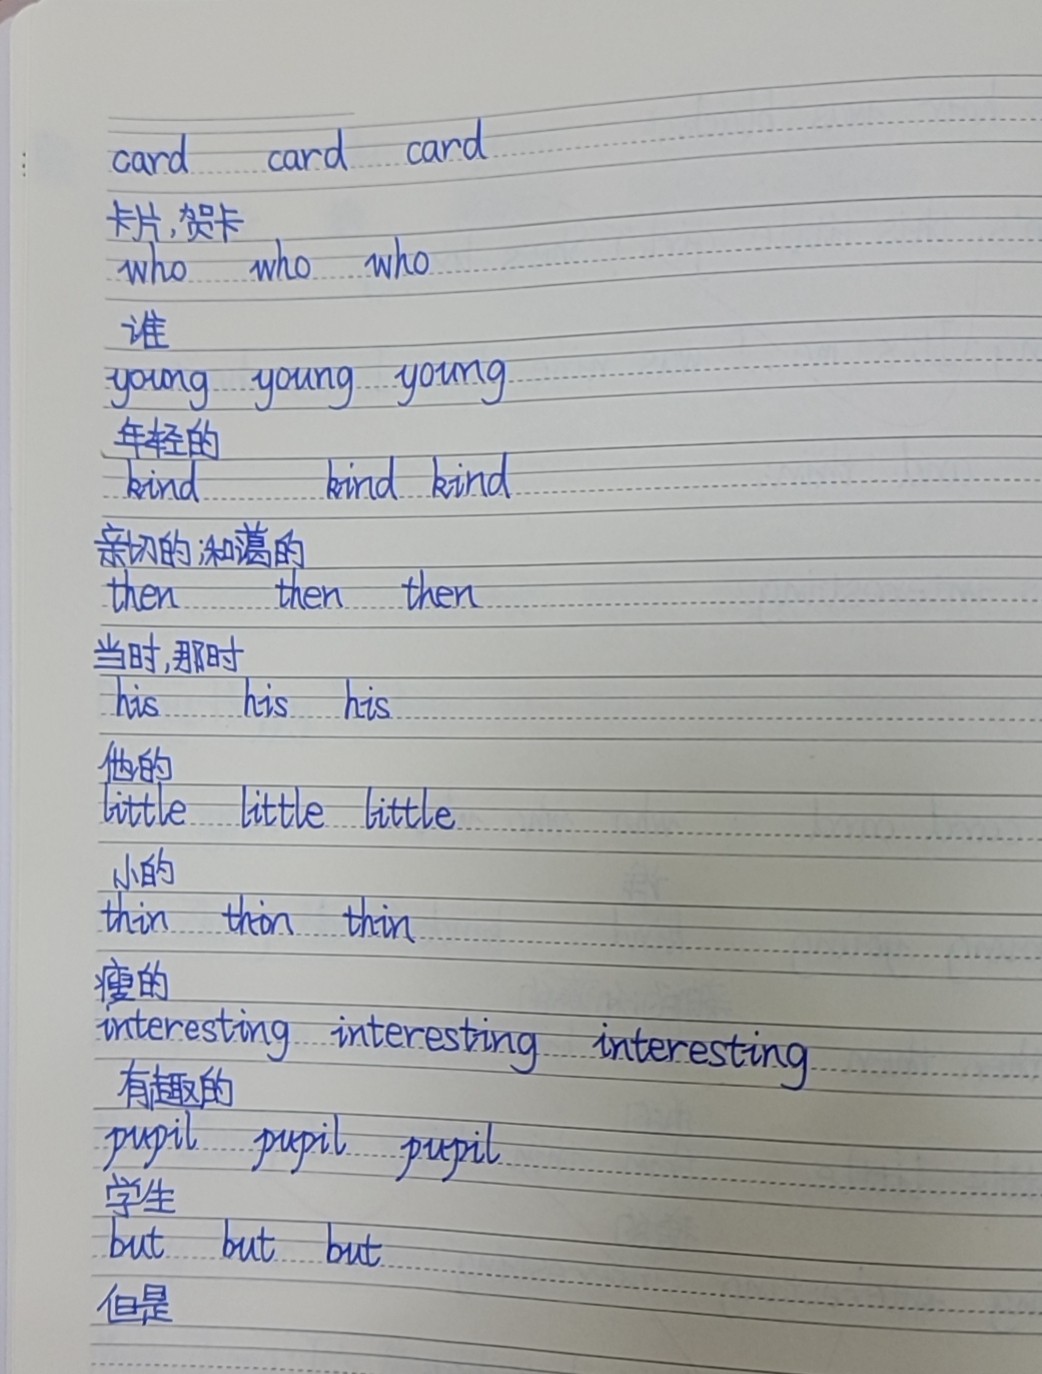 card card card
卡片,贺卡
who who who
谁
young young young
年轻的
kind kind kind
亲切的;和蔼的
then then then
当时,那时
his his his
他的
little little little
小的
thin thin thin
瘦的
interesting interesting interesting
有趣的
pupil pupil pupil
学生
but but but
但是